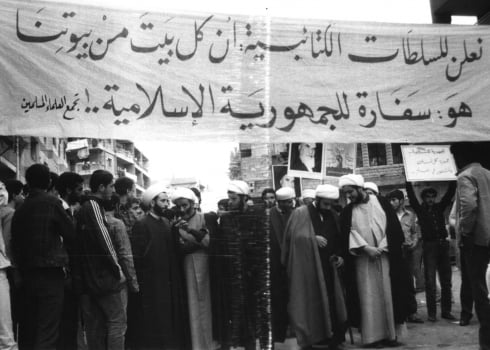 نعلن للسلطات الكتائبية: ان كل بيت من بيوتنا
هو: سفارة للجمهورية الإسلامية..! تجمع العلماء المسلمين